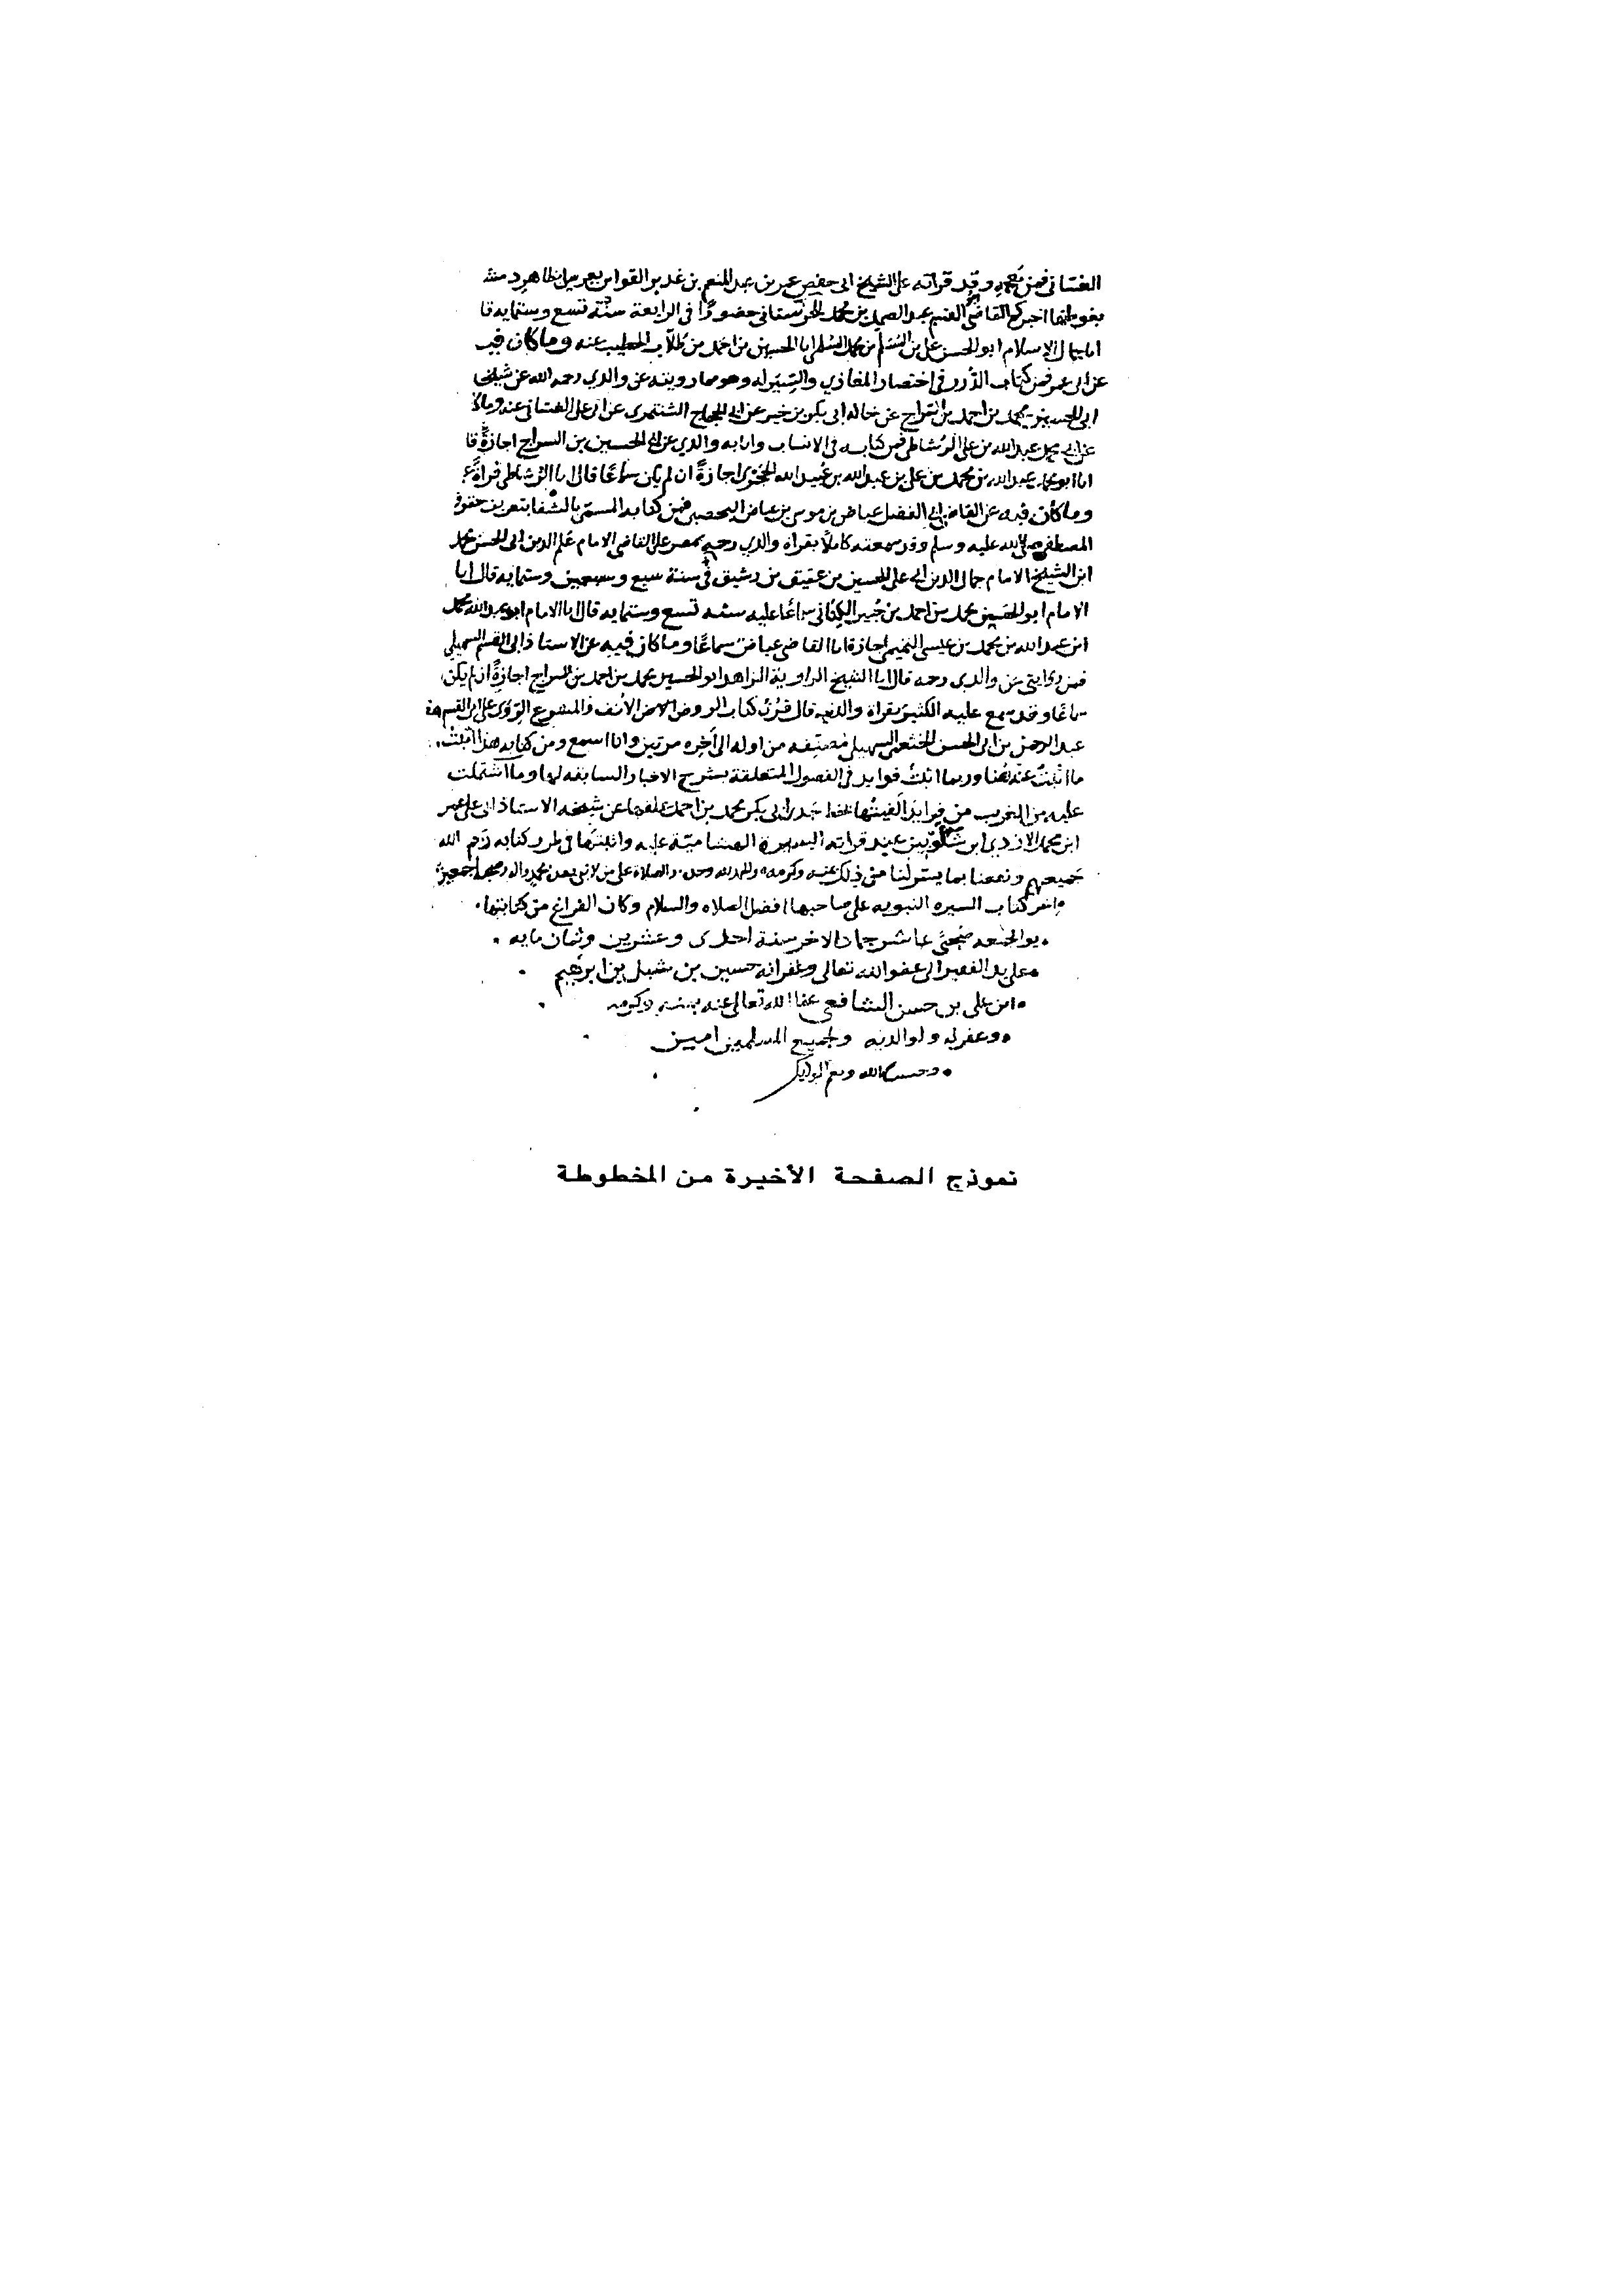 الغساني فمن معجمه وقد قراته على الشيخ ابي حفص عمر بن عبد المنعم بن غدير القواس بعربيل ظاهر دمشق
بغوطتها اخبركم القاضي ابو القسم عبد الصمد بن محمد الحرستاني حضورًا في الرابعة سنة تسع وستمايه قا
انا جمال الاسلام ابو الحسن علي بن المسلم بن محمد السلمي انا الحسين بن احمد بن طلاب الخطيب عنه وما كان فيه
عن ابي عمر فمن كتاب الدُّرر في اختصار المغازي والسِّيَر له وهو مما رويته عن والدي رحمه الله عن شيخه
ابي الحسين محمد بن احمد بن السراج عن خاله ابي بكر بن خير عن ابي الحجاج الشنتمري عن ابي علي الغساني عنه وما كا
عن ابي محمد عبد الله بن علي الرُشاطي فمن كتابه في الانساب وانا به والدي عن ابي الحسين بن السراج اجازةً قا
انا ابو محمد عبد الله بن محمد بن علي بن عبد الله بن عُبيد الله الحَجْري اجازةً ان لم يكن سماعًا قال انا الرُشاطي قراةً
وما كان فيه عن القاضي ابي الفضل عياض بن موسى بن عياض اليحصبي فمن كتابه المسمى بالشفا بتعريف حقوق
المصطفى صلى الله عليه وسلم وقد سمعته كاملًا بقراة والدي رحمه بمصر على القاضي الامام علم الدين ابي الحسن محمد
ابن الشيخ الامام جمال الدين ابي علي الحسين بن عتيق بن رشيق في سنة سبع وسبعين وستمايه قال انا
الامام ابو الحسين محمد بن احمد بن جُبير الكِناني سماعًا عليه سنه تسع وستمايه قال انا الامام ابو عبد الله محمد
ابن عبد الله بن محمد بن عيسى التميمي اجازة انا القاضي عياض سماعًا وما كان فيه عن الاستاذ ابي القسم السهيلي
فمن روايتي عن والدي رحمه قال انا الشيخ الراوية الزاهد ابو الحسين محمد بن احمد بن السراج اجازةً ان لم يكن
سماعًا وقد سمع عليه الكثير بقراة والده قال قُرئ كتاب الروض الانف والمشرع الرِّوَى على ابي القسم
عبد الرحمن بن ابي الحسن الخثعمي السهيلي مُصنفه من اوله الى آخره مرتين وانا اسمع ومن كتابه هذا اثبتُّ
ما اثبتُّ عنه هُنا وربما اثبتُّ فوايد في الفصول المتعلقة بشرح الاخبار السابقه لها وما اشتملت
عليه من الغريب من فوايدَ ألفيتُها بخط جدي ابي بكر محمد بن احمد علقها عن شيخه الاستاذ ابي علي عمر
ابن محمد الازدي ابن شَلَوبين عند قراته السيرة الهشاميّة عليه واثبتها في طرر كتابه رَحم الله
جَميعهم ونفعنا بما يسّر لنا من ذلك بمنه وكرمه والحمد لله وحده والصلاة على من لا نبي بعده محمد واله وصحبه اجمعين
اخر كتاب السيره النبويه على صاحبها افضل الصلاه والسلام وكان الفراغ من كتابتها
يوم الجمعه ضحى عاشر جماد الاخر سنة احدى وعشرين وثمان مايه
على يد الفقير الى عفو الله تعالى وغفرانه حسين بن شبل بن ابرهيم
ابن علي بن حسن الشافعي عفا الله تعالى عنه بمنه وكرمه
وغفر له ولوالديه ولجميع المسلمين امين
وحسبنا الله ونعم الوكيل
نموذج الصفحة الأخيرة من المخطوطة